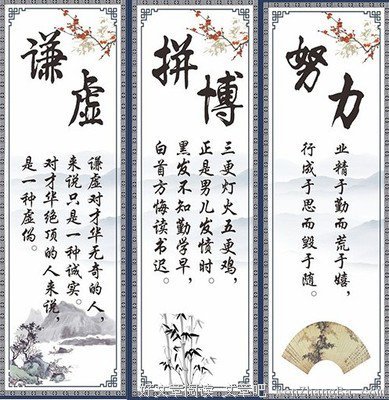 谦虚
谦虚对才华无奇的人，
来说只是一种诚实。
对才华绝顶的人来说，
是一种虚伪。
拼搏
三更灯火五更鸡，
正是男儿发愤时。
黑发不知勤学早，
白首方悔读书迟。
努力
业精于勤而荒于嬉，
行成于思而毁于随。